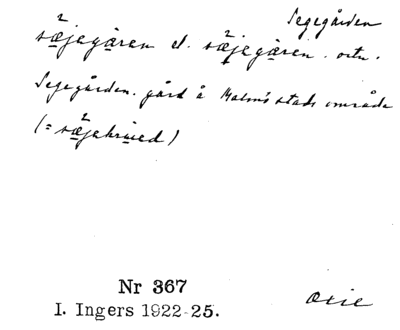 Segegården
sæ̠jega̠ren el. sæ̠jega̠ren. ortn.
Segegården. gård å Malmö stads område
(= sæ̠jekru̠ed)
Nr 367
I. Ingers 1922-25.
Oxie